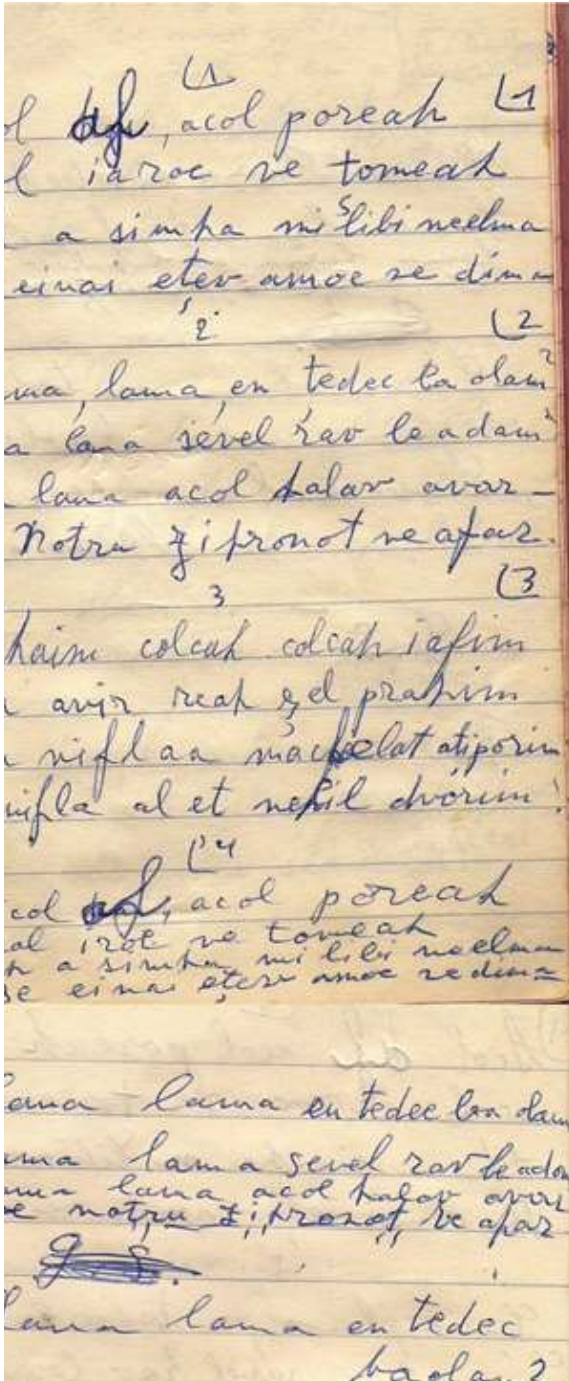 1
1
ol af, acol poreah
l iaroc ve tomeah
a simha mi libi neelma
einai eţev amoc ze dima
2
2
ma, lama, en tedec ba olam?
a lama sevel rav le adam?
lama acol halav avar
Notru zihronot ve afar.
3
3
haim colcah colcah iafim
avir reah şel prahim
niflaa mac elat atiporim
nifla al et nehil dvorim!
4
col, acol poreah
ol iroc ve tomeah
h a simha mi libi neelma
se einai eţev amoc ze dima
lama lama en tedec ba olam
ama lama sevel rav le adam
ama lama acol halav avar
e notru zihronot ve apar
lama lama en tedec
ba olam?